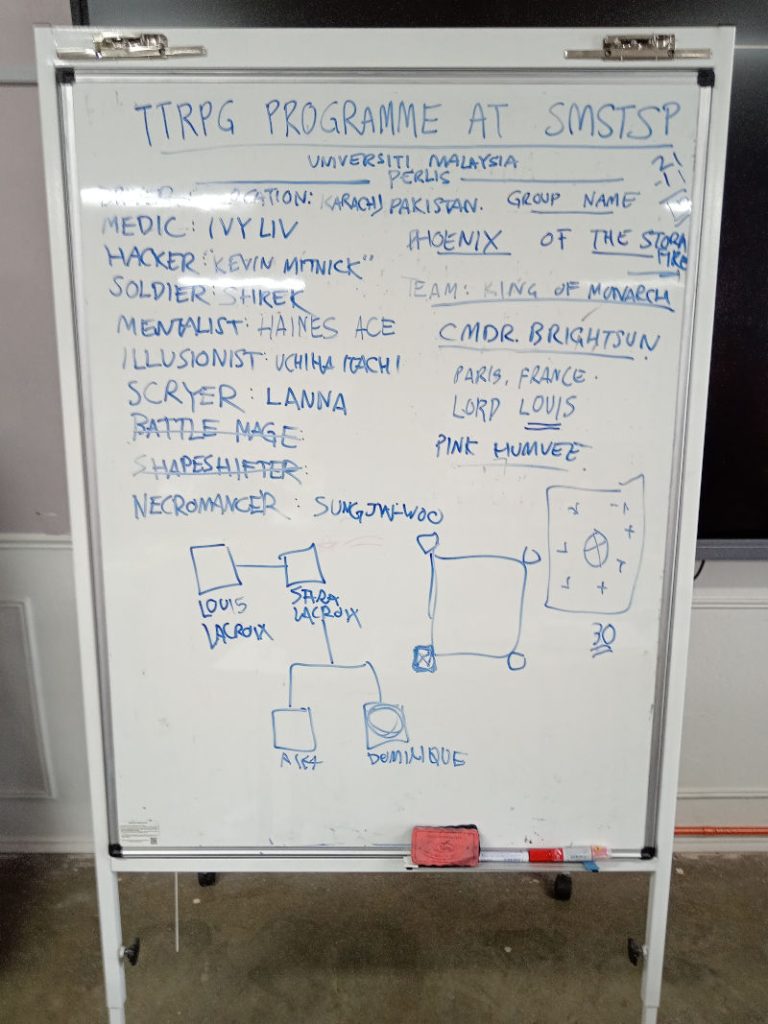 TTRPG PROGRAMME AT SMSTSP
UNIVERSITI MALAYSIA
PERLIS
21
-11
LOCATION: KARACHI PAKISTAN.
GROUP NAME
MEDIC: IVY LIV
PHOENIX OF THE STORM
FIRE
HACKER: "KEVIN MITNICK"
SOLDIER: SHREK
TEAM: KING OF MONARCH
MENTALIST: HAINES ACE
CMDR. BRIGHTSUN
ILLUSIONIST: UCHIHA ITACHI
PARIS, FRANCE.
SCRYER: LANNA
LORD LOUIS
BATTLE MAGE:
PINK HUMVEE
SHAPESHIFTER:
NECROMANCER: SUNG JIN-WOO
LOUIS
LACROIX
SARA
LACROIX
30
DOMINIQUE